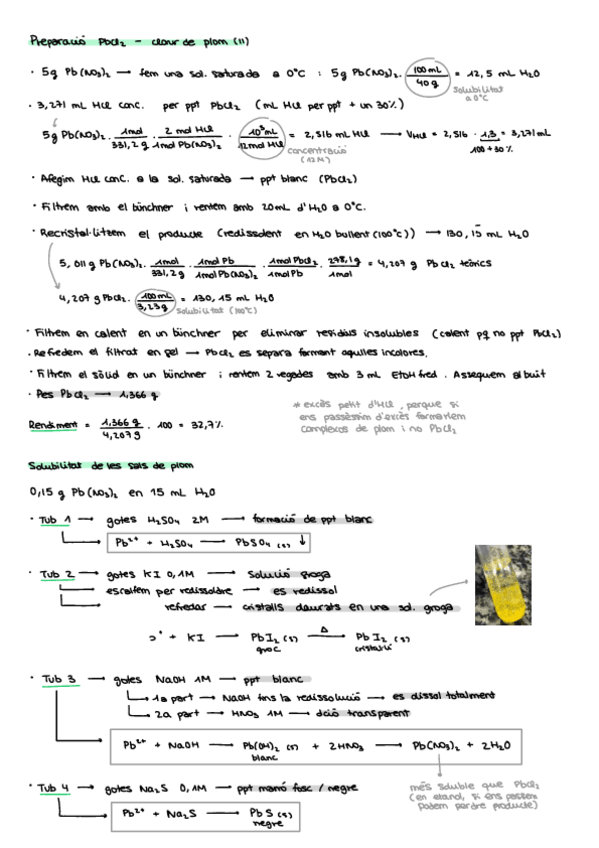 Preparació PbCl₂ - clorur de plom (II)
· 5g Pb(NO₃)₂ → fem una sol. saturada a 0°C : 5g Pb(NO₃)₂ · 100 mL / 40 g = 12,5 mL H₂O
solubilitat a 0°C
· 3,271 mL HCl conc. per ppt PbCl₂ (mL HCl per ppt + un 30%)
5g Pb(NO₃)₂ · 1mol / 331,2 g · 2 mol HCl / 1mol Pb(NO₃)₂ · 10³mL / 12mol HCl = 2,516 mL HCl → V HCl = 2,516 · 1,3 = 3,271 mL
concentració (12M)
100 + 30%
· Afegim HCl conc. a la sol. saturada → ppt blanc (PbCl₂)
· Filtrem amb el bünchner i rentem amb 20mL d'H₂O a 0°C.
· Recristal·litzem el producte (redissolent en H₂O bullent (100°C)) → 130,15 mL H₂O
5,011g Pb(NO₃)₂ · 1mol / 331,2 g · 1mol Pb / 1mol Pb(NO₃)₂ · 1mol PbCl₂ / 1mol Pb · 278,1g / 1mol = 4,207 g PbCl₂ teòrics
4,207 g PbCl₂ · 100mL / 3,23g = 130,15 mL H₂O
solubilitat (100°C)
· Filtrem en calent en un bünchner per eliminar residus insolubles (calent pq no ppt PbCl₂)
· Refredem el filtrat en gel → PbCl₂ es separa formant agulles incolores.
· Filtrem el sòlid en un bünchner i rentem 2 vegades amb 3 mL EtOH fred. Assequem al buit
· Pes PbCl₂ → 1,366 g
* excés petit d'HCl, perque si
ens passèssim d'excés formaríem
complexos de plom i no PbCl₂
Rendiment = 1,366 g / 4,207 g · 100 = 32,7%
Solubilitat de les sals de plom
0,15 g Pb(NO₃)₂ en 15 mL H₂O
· Tub 1 → gotes H₂SO₄ 2M → formació de ppt blanc
Pb²⁺ + H₂SO₄ → PbSO₄ (s) ↓
· Tub 2 → gotes KI 0,1M → solució groga
escalfem per redissoldre → es redissol
refredar → cristalls daurats en una sol. groga
²⁺ + KI → PbI₂ (s) Δ → PbI₂ (s)
groc
cristal·lí
· Tub 3 → gotes NaOH 1M → ppt blanc
1a part → NaOH fins la redissolució → es dissol totalment
2a part → HNO₃ 1M → dció transparent
Pb²⁺ + NaOH → Pb(OH)₂ (s) + 2HNO₃ → Pb(NO₃)₂ + 2H₂O
blanc
· Tub 4 → gotes Na₂S 0,1M → ppt marró fosc / negre
Pb²⁺ + Na₂S → PbS (s)
negre
més soluble que PbCl₂
(en etanol, si ens passem
podem perdre producte)